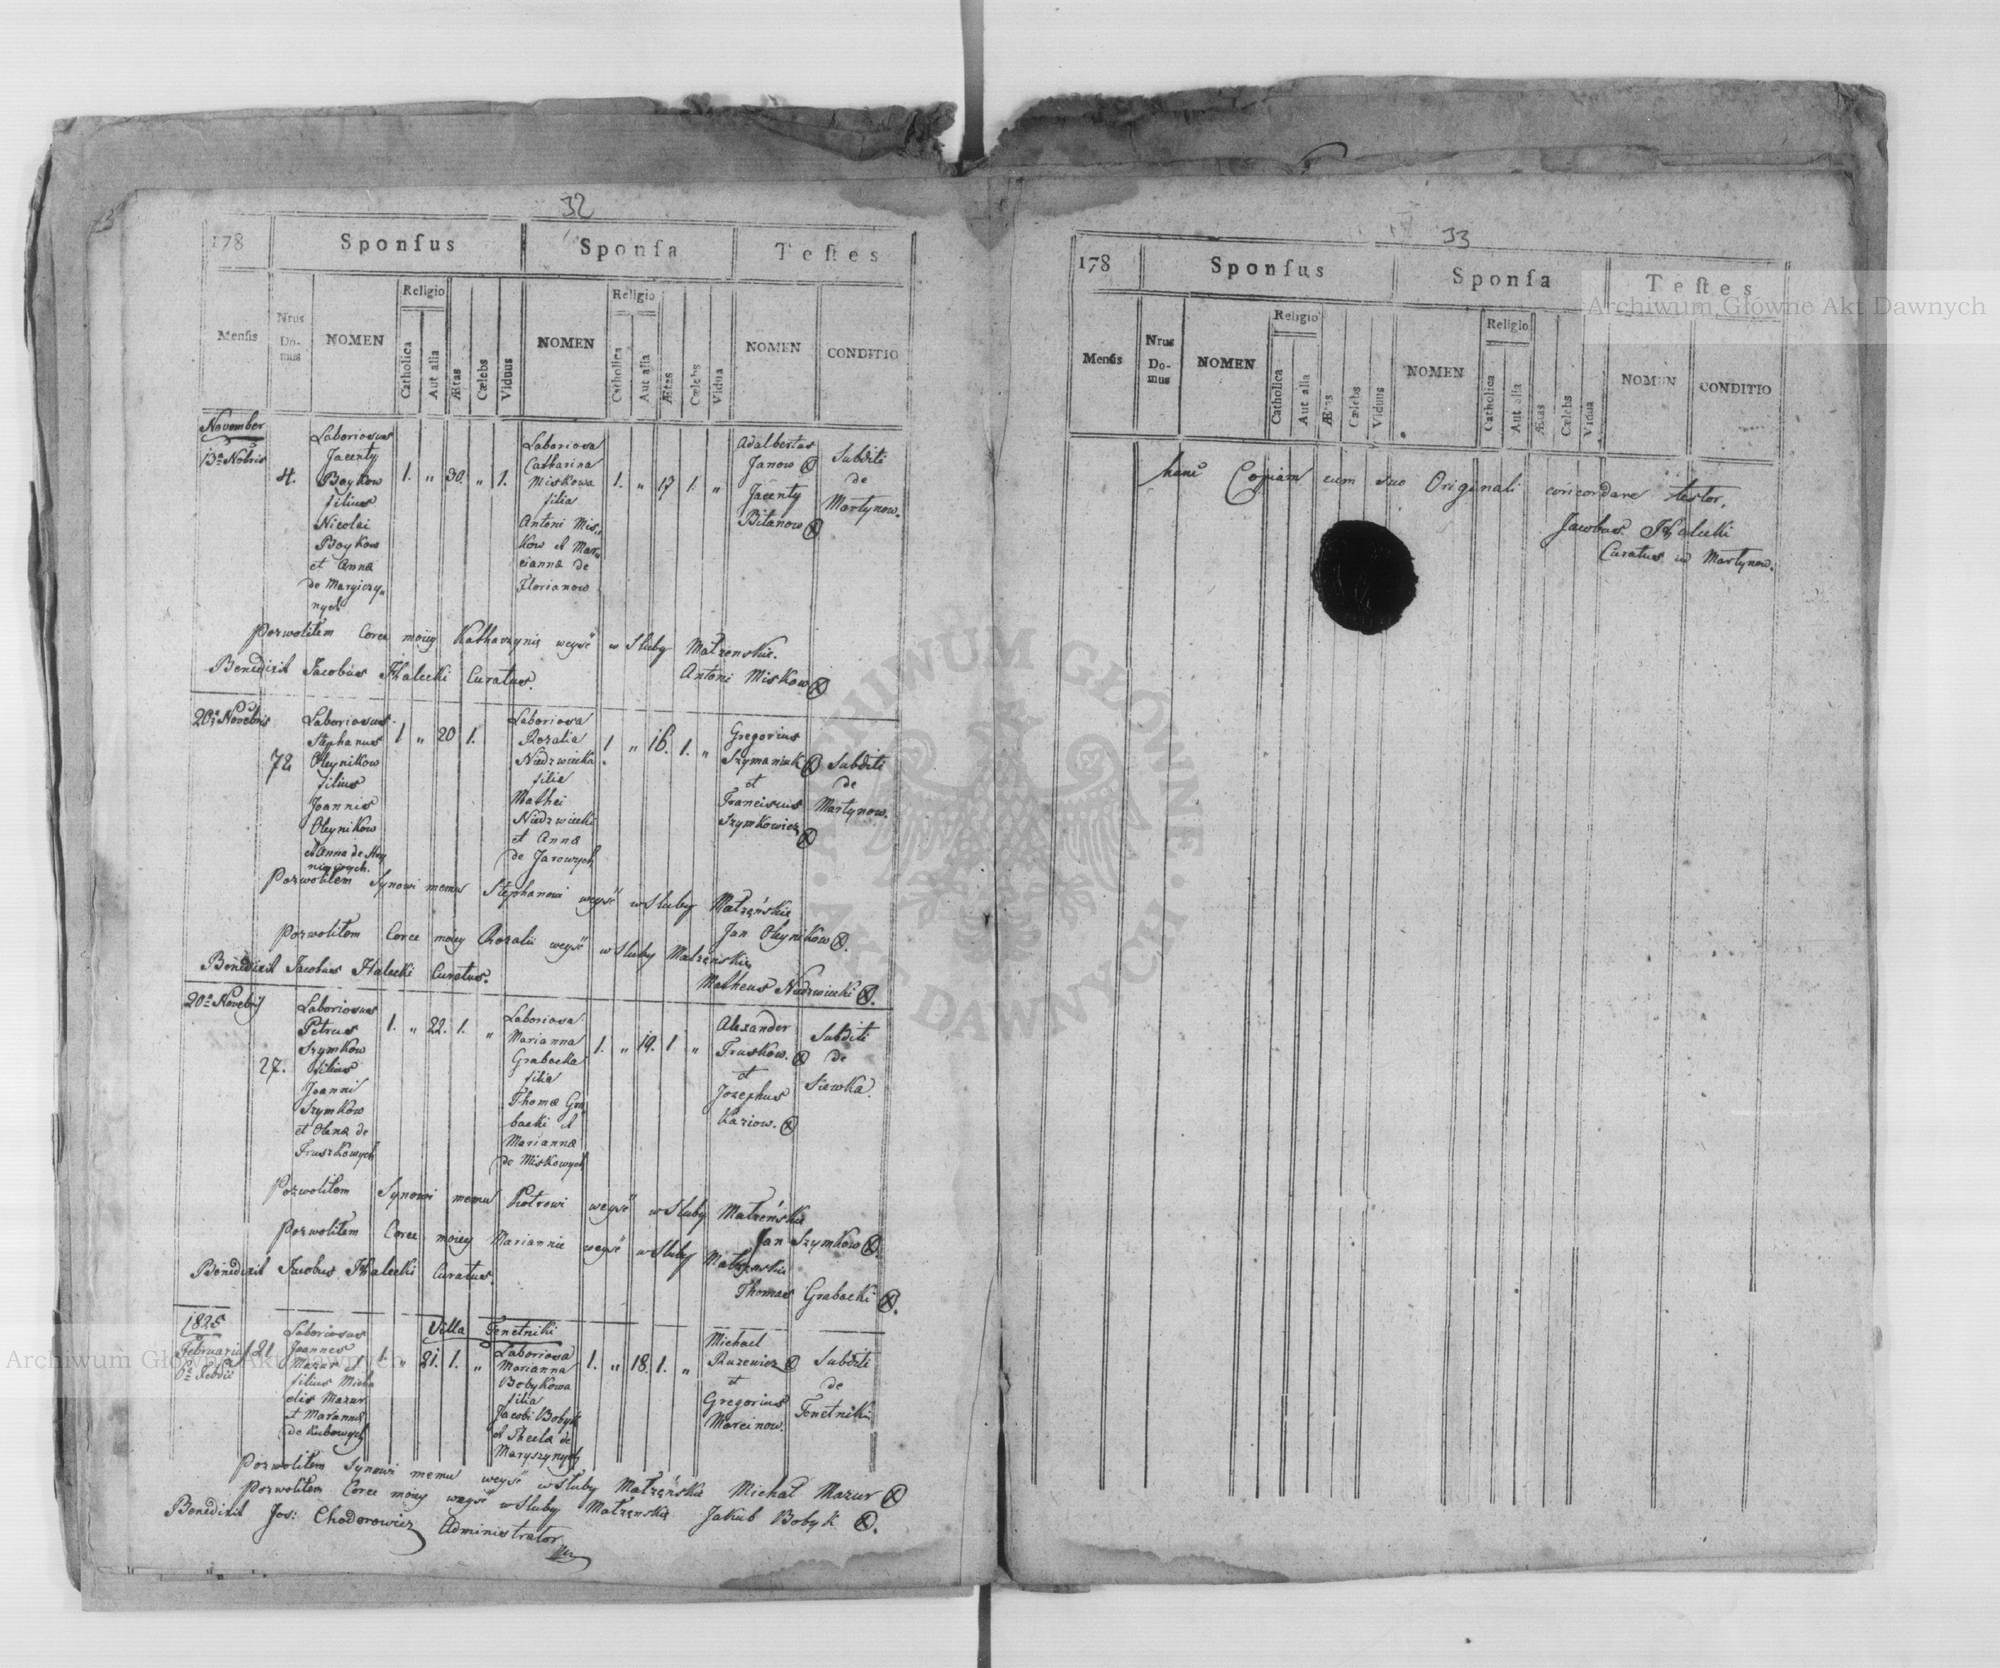 32
178
Sponſus
Sponſa
Teſtes
Menſis
Nrus Do-mus
NOMEN
Religio
Catholica
Aut alia
Ætas
Cælebs
Viduus
NOMEN
Religio
Catholica
Aut alia
Ætas
Cælebs
Vidua
NOMEN
CONDITIO
November
13a Nobris
4.
Laboriosus
Jacenty
Boykow
filius
Nicolai
Boykow
et Annæ
de
nych
1. „ 30. „ 1.
Laboriosa
Catharina
Miskowa
filia
Antoni Mis-
kow et Mar-
cianna de
Florianow
1. „ 17 1. „
Adalbertus
Janow
Jacenty
Bitanow
Subditi
de
Martynow.
Pozwolilem Corce moiey Katharzynie weysć w Sluby Małzenskie.
Antoni Miskow
Benedixit Jacobus Halecki Curatus.
20a Novebris
72
Laboriosus
Stephanus
Oleynikow
filius
Joannis
Oleynikow
et Anna de
1 „ 20 1.
Laboriosa
Rozalia
Niedzwiecka
filia
Mathei
Niedzwiecki
et Anna
de Jarowych
1. „ 16. 1. „
Gregorius
Szymaniuk
et
Franciscus
Szymkowicz
Subditi
de
Martynow.
Pozwolilem Synowi memu Stephanowi weysć w Sluby Małzęnskie
Jan Oleynikow
Pozwolilem Corce moiey Rozalii weysć w Sluby Małzęnskie
Matheus Niedzwiecki
Benedixit Jacobus Halecki Curatus.
20a Novebris
27.
Laboriosus
Petrus
Szymkow
filius
Joanni
Szymkow
et Olenæ de
Truszkowych
1. „ 22. 1. „
Laboriosa
Marianna
Grabacka
filia
Thomæ Gra
backi et
Mariannæ
de Miskowych
1. „ 19. 1 „
Alexander
Truskow.
et
Josephus
Kaziow.
Subditi
de
Siewka.
Pozwolilem Synowi memu Piotrowi weysć w Sluby Małzeńskie
Jan Szymkow
Pozwolilem Corce moiey Mariannie weysć w Sluby Małzęnskie
Thomas Grabacki
Benedixit Jacobus Halecki Curatus.
Villa Tenetniki
1825
Februarius
21
Laboriosus
Joannes
Mazur
filius Micha
elis Mazur
et Marianna
de Kubowych
1. „ 21. 1. „
Laboriosa
Marianna
Bobykowa
filia
Jacobi Bobyk
et Theclæ de
Maryszynych
1. „ 18. 1. „
Michael
Ruzewicz
et
Gregorius
Marcinow.
Subditi
de
Tenetniki
Pozwolilem Synowi memu weysć w Sluby Małzęńskie Michał Mazur
Pozwolilem Corce moiey weysć w Sluby Małzęnskie Jakub Bobyk
Benedixit Jos: Chodorowicz Administrator
33
178
Sponſus
Sponſa
Teſtes
Menſis
Nrus Do-mus
NOMEN
Religio
Catholica
Aut alia
Ætas
Cælebs
Viduus
NOMEN
Religio
Catholica
Aut alia
Ætas
Cælebs
Vidua
NOMEN
CONDITIO
hanc Copiam cum suo Originali concordare testor,
Jacobus Halecki
Curatus in Martynow.
Archiwum Główne Akt Dawnych
Archiwum Główne Akt Dawnych
ARCHIWUM GŁÓWNE AKT DAWNYCH